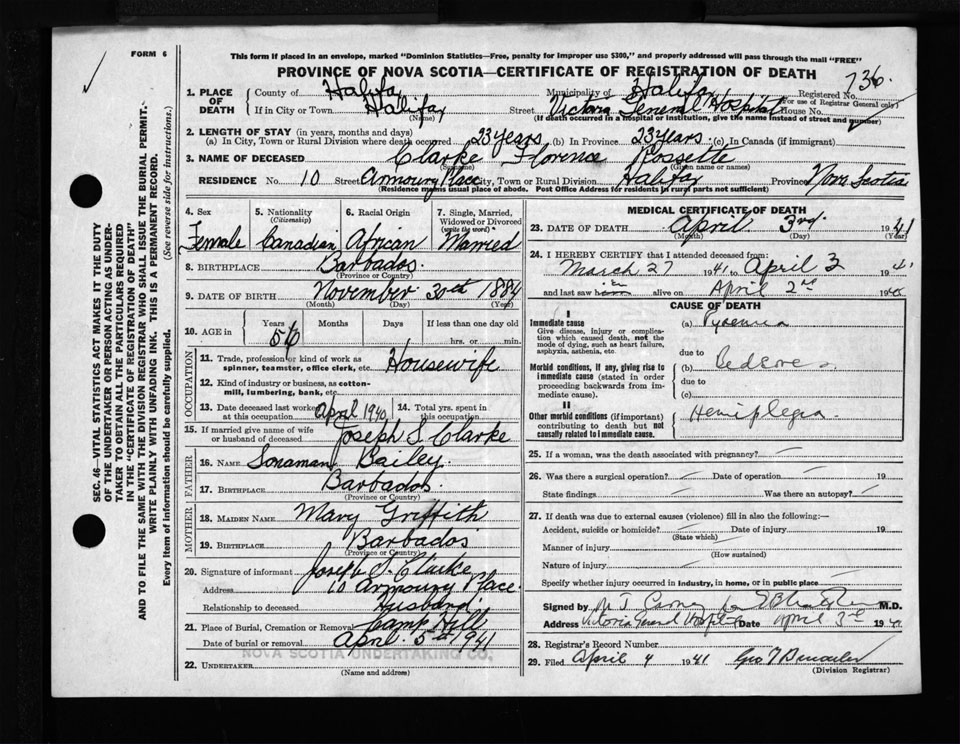 FORM 6
This form if placed in an envelope, marked "Dominion Statistics—Free, penalty for improper use $300," and properly addressed will pass through the mail "FREE"
PROVINCE OF NOVA SCOTIA—CERTIFICATE OF REGISTRATION OF DEATH
736.
1. PLACE OF DEATH County of Halifax Municipality of Halifax Registered No.
(For use of Registrar General only)
If in City or Town Halifax Street Victoria General Hospital House No.
(Name) (If death occurred in a hospital or institution, give the name instead of street and number)
2. LENGTH OF STAY (in years, months and days)
(a) In City, Town or Rural Division where death occurred 23 years (b) In Province 23 years (c) In Canada (if immigrant)
3. NAME OF DECEASED Clarke Florence Rossette
(Surname) (Given name or names)
RESIDENCE No. 10 Street Armoury Place City, Town or Rural Division Halifax Province Nova Scotia
(Residence means usual place of abode. Post Office Address for residents in rural parts not sufficient)
4. Sex Female
5. Nationality (Citizenship) Canadian
6. Racial Origin African
7. Single, Married, Widowed or Divorced (write the word) Married
8. BIRTHPLACE Barbados.
(Province or Country)
9. DATE OF BIRTH November 30th 1884
(Month) (Day) (Year)
10. AGE in Years 56 Months Days If less than one day old
hrs. or min.
OCCUPATION
11. Trade, profession or kind of work as spinner, teamster, office clerk, etc. Housewife
12. Kind of industry or business, as cotton-mill, lumbering, bank, etc.
13. Date deceased last worked at this occupation April 1940
14. Total yrs. spent in this occupation
15. If married give name of wife or husband of deceased Joseph S. Clarke
FATHER
16. NAME Bailey.
17. BIRTHPLACE Barbados.
(Province or Country)
MOTHER
18. MAIDEN NAME Mary Griffith
19. BIRTHPLACE Barbados
(Province or Country)
20. Signature of informant Joseph S. Clarke
Address 10 Armoury Place.
Relationship to deceased Husband
21. Place of Burial, Cremation or Removal Camp Hill
Date of burial or removal April 5th 1941
NOVA SCOTIA UNDERTAKING CO.
22. UNDERTAKER
(Name and address)
MEDICAL CERTIFICATE OF DEATH
23. DATE OF DEATH April 3rd 1941
(Month) (Day) (Year)
24. I HEREBY CERTIFY that I attended deceased from:
March 27 1941 to April 3 1941
and last saw him alive on April 2nd 194
CAUSE OF DEATH
I
Immediate cause
Give disease, injury or complication which caused death, not the mode of dying, such as heart failure, asphyxia, asthenia, etc.
(a) Pyaemia
due to
Morbid conditions, if any, giving rise to immediate cause (stated in order proceeding backwards from immediate cause).
(b) Bedsores
due to
(c)
II
Other morbid conditions (if important) contributing to death but not causally related to immediate cause.
Hemiplegia
25. If a woman, was the death associated with pregnancy?
26. Was there a surgical operation? Date of operation 19
State findings Was there an autopsy?
27. If death was due to external causes (violence) fill in also the following:—
Accident, suicide or homicide? Date of injury 19
(State which)
Manner of injury
(How sustained)
Nature of injury
Specify whether injury occurred in industry, in home, or in public place
Signed by M.D.
Address Victoria General Hospital Date April 3rd 194
28. Registrar's Record Number
29. Filed April 4 1941
(Division Registrar)
SEC. 46—VITAL STATISTICS ACT MAKES IT THE DUTY
OF THE UNDERTAKER OR PERSON ACTING AS UNDER-
TAKER TO OBTAIN ALL THE PARTICULARS REQUIRED
IN THE "CERTIFICATE OF REGISTRATION OF DEATH"
AND TO FILE THE SAME WITH THE DIVISION REGISTRAR WHO SHALL ISSUE THE BURIAL PERMIT.
WRITE PLAINLY WITH UNFADING INK. THIS IS A PERMANENT RECORD.
Every item of information should be carefully supplied. (See reverse side for instructions.)